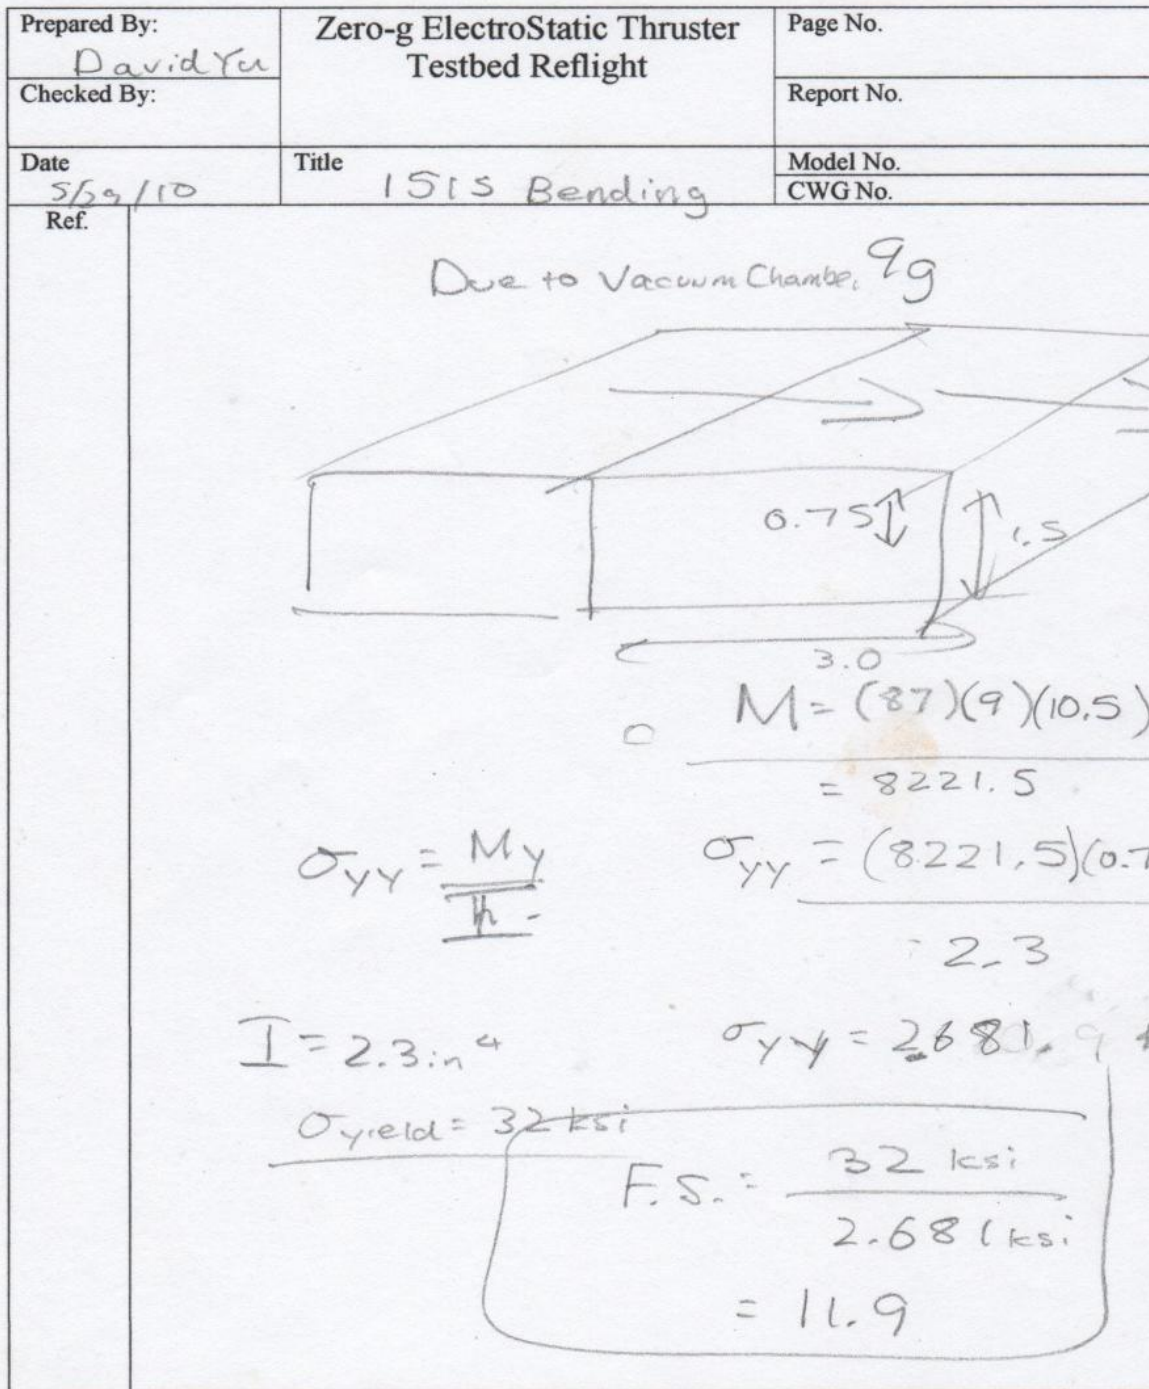 Prepared By:
David Yu
Checked By:
Zero-g ElectroStatic Thruster
Testbed Reflight
Page No.
Report No.
Date
5/29/10
Title
1515 Bending
Model No.
CWG No.
Ref.
Due to Vacuum Chamber 9g
0.75
1.5
3.0
M = (87)(9)(10.5)
= 8221.5
σyy = My
I
σyy = (8221.5)(0.7
2.3
I = 2.3 in⁴
σyy = 2681.9
σyield = 32 ksi
F.S. = 32 ksi
2.681 ksi
= 11.9